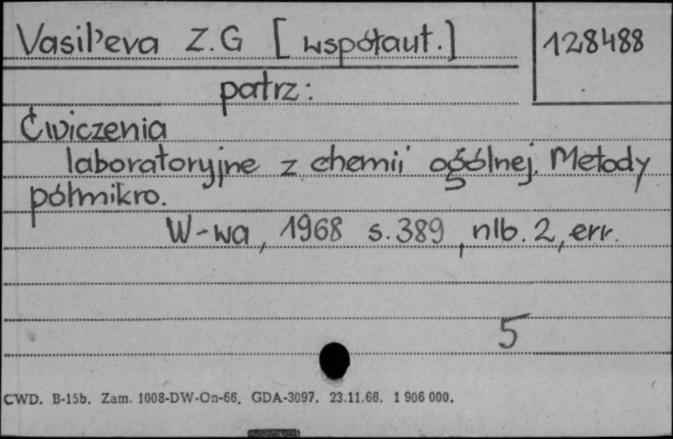 Vasil'eva Z.G [współaut.]
128488
patrz:
Ćwiczenia
laboratoryjne z chemii ogólnej. Metody
półmikro.
W-wa, 1968 s.389, nlb. 2, err.
5
CWD. B-15b. Zam. 1008-DW-On-66. GDA-3097. 23.11.66. 1 906 000.